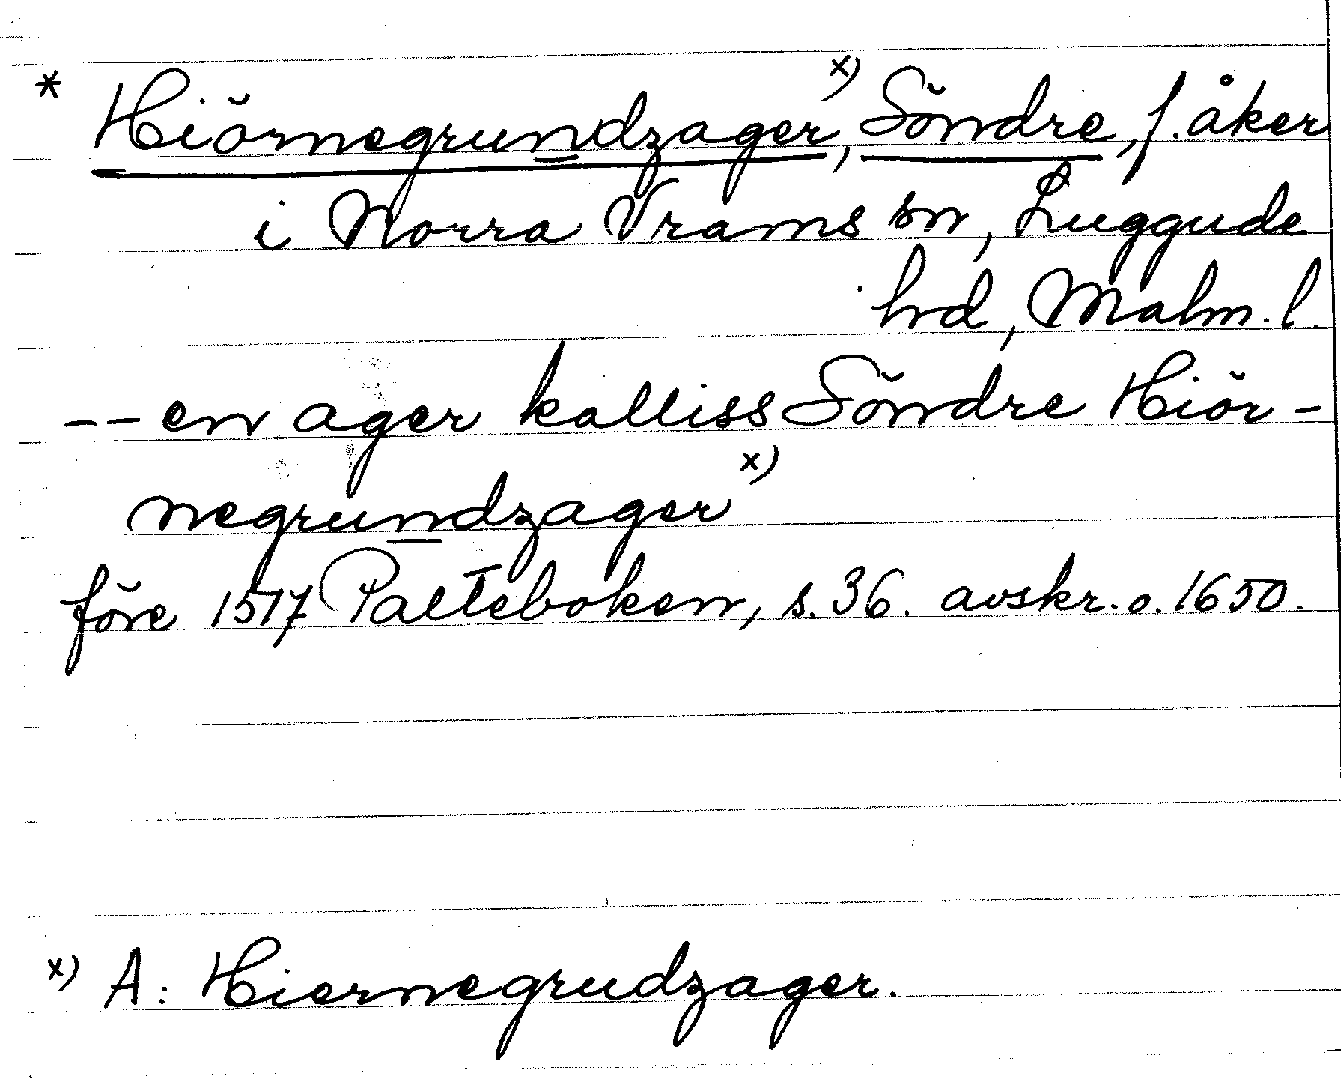 * Hiörnegrundzager x), Söndre, f. åker
i Norra Vrams sn, Luggude
hd, Malm. l.
-- en ager kalliss Söndre Hiör-
negrundzager x)
före 1517 Palteboken, s. 36. avskr. o. 1650.
x) A: Hiernegrudzager.